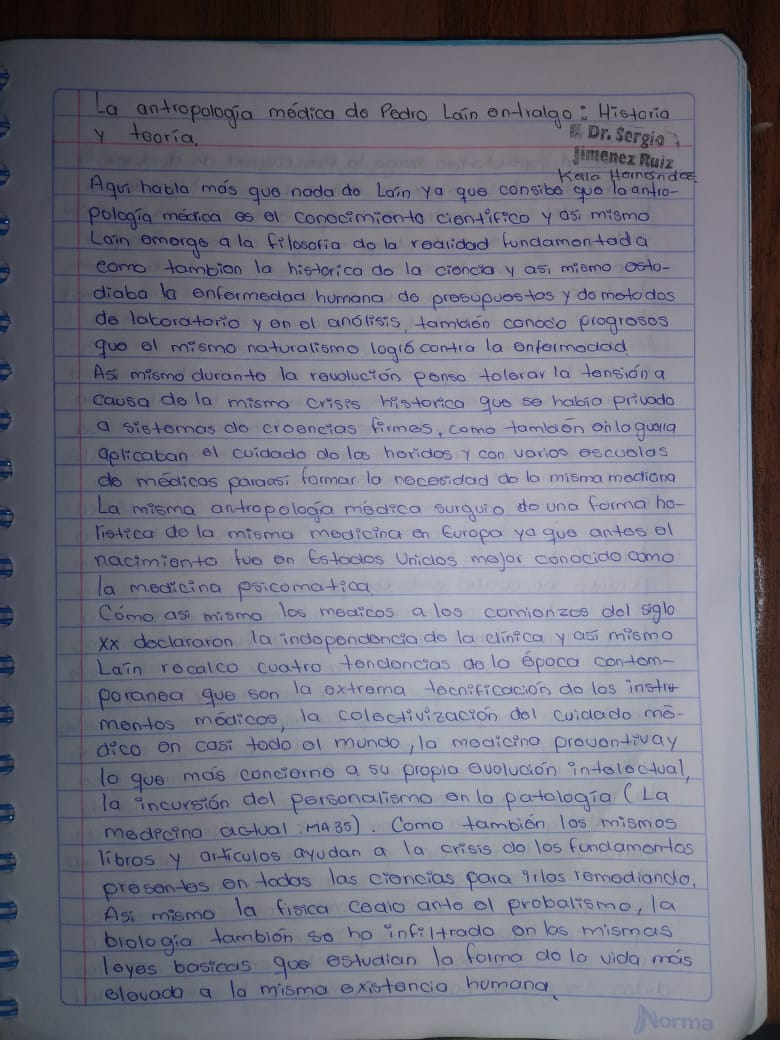 La antropología médica de Pedro Laín entralgo: Historia
y teoría.
Dr. Sergio
Jimenez Ruiz
Karla Hernandez
Aquí habla más que nada de Laín ya que consibe que la antro-
pología médica es el conocimiento científico y asi mismo
Laín emerge a la filosofia de la realidad fundamentada
como tambien la historica de la ciencia y asi mismo estu-
diaba la enfermedad humana de presupuestos y de metodos
de laboratorio y en el análisis, también conoce progresos
que el mismo naturalismo logró contra la enfermedad.
Asi mismo durante la revolución penso tolerar la tensión a
causa de la misma crisis historica que se había privado
a sistemas de creencias firmes, como también en la guerra
aplicaban el cuidado de los heridos y con varios escuelas
de médicos para asi formar la necesidad de la misma medicina
La misma antropología médica surguio de una forma ho-
lística de la misma medicina en Europa ya que antes el
nacimiento fue en Estados Unidos mejor conocido como
la medicina psicomatica.
Cómo asi mismo los medicos a los comienzos del siglo
xx declararon la independencia de la clínica y así mismo
Laín recalco cuatro tendencias de la época contem-
poranea que son la extrema tecnificación de los instru-
mentos médicos, la colectivización del cuidado mé-
dico en casi todo el mundo, la medicina preventiva y
lo que más concierne a su propia evolución intelectual,
la incursión del personalismo en la patología (La
medicina actual: MA35). Como también los mismos
libros y artículos ayudan a la crisis de los fundamentos
presentes en todas las ciencias para irlos remediando.
Asi mismo la fisica cedio ante el probalismo, la
biología también se ha infiltrado en las mismas
leyes basicas que estudian la forma de la vida más
elevada a la misma existencia humana.
Norma